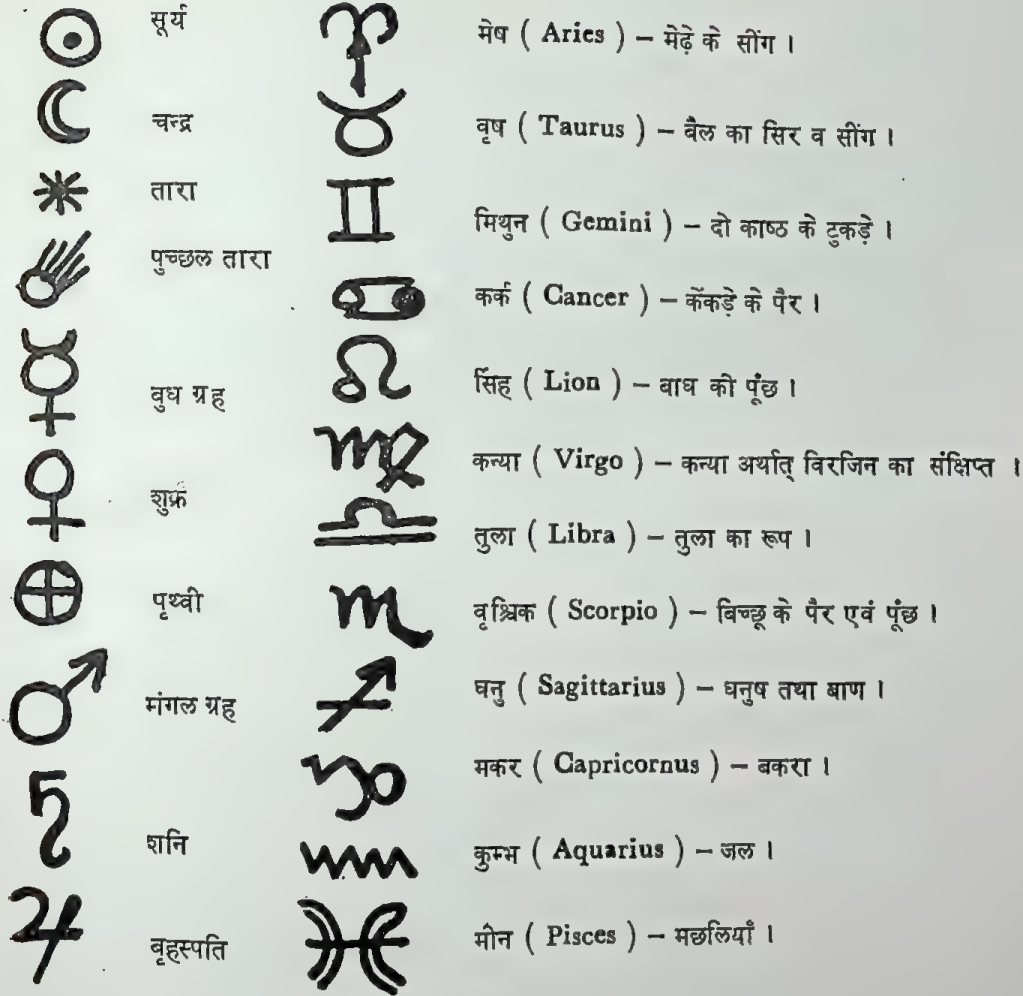 सूर्य
चन्द्र
तारा
पुच्छल तारा
वुध ग्रह
शुक्र
पृथ्वी
मंगल ग्रह
शनि
बृहस्पति
मेष ( Aries ) – मेढ़े के सींग ।
वृष ( Taurus ) – बैल का सिर व सींग ।
मिथुन ( Gemini ) – दो काष्ठ के टुकड़े ।
कर्क ( Cancer ) – केंकड़े के पैर ।
सिंह ( Lion ) – बाघ की पूंछ ।
कन्या ( Virgo ) – कन्या अर्थात् विरजिन का संक्षिप्त ।
तुला ( Libra ) – तुला का रूप ।
वृश्चिक ( Scorpio ) – बिच्छू के पैर एवं पूंछ ।
धनु ( Sagittarius ) – धनुष तथा बाण ।
मकर ( Capricornus ) – बकरा ।
कुम्भ ( Aquarius ) – जल ।
मीन ( Pisces ) – मछलियाँ ।